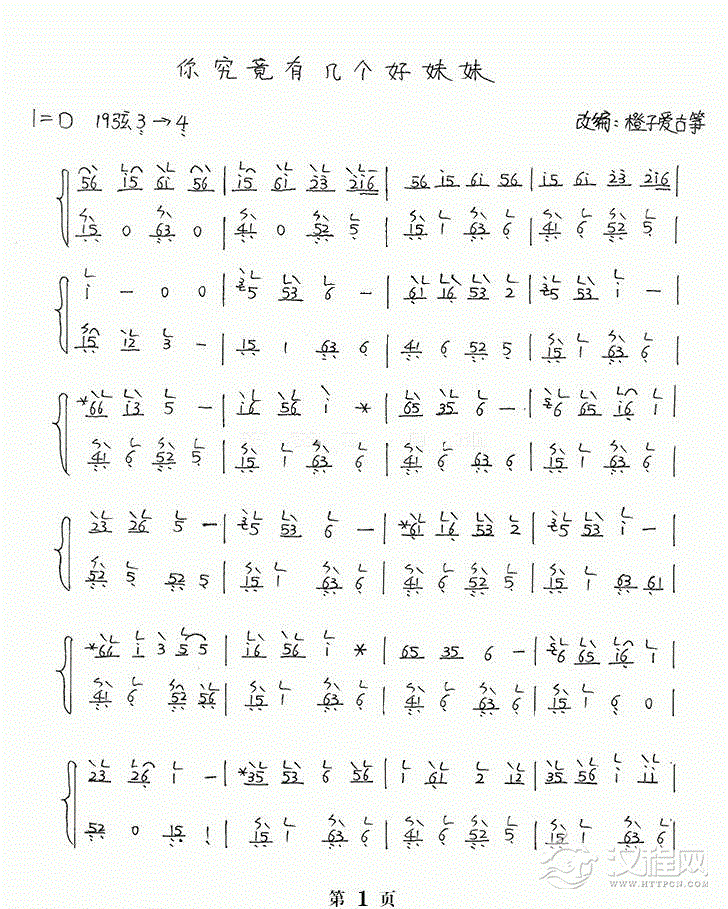 你究竟有几个好妹妹
1=D 19弦3→4 改编:橙子爱古筝
56 i5 6i 56 | i5 6i 23 2i6 | 56 i5 6i 56 | i5 6i 23 2i6 |
15 0 63 0 | 41 0 52 5 | 15 1 63 6 | 41 6 52 5 |
i - 0 0 | 5 53 6 - | 61 16 53 2 | 5 53 i - |
15 12 3 - | 15 1 63 6 | 41 6 52 5 | 15 1 63 6 |
*66 i3 5 - | i6 56 i * | 65 35 6 - | 6 65 i6 1 |
41 6 52 5 | 15 1 63 6 | 41 6 63 6 | 15 1 63 6 |
23 26 5 - | 5 53 6 - | *61 16 53 2 | 5 53 i - |
52 5 52 5 | 15 1 63 6 | 41 6 52 5 | 15 1 63 61 |
*66 i 3 5 5 | i6 56 i * | 65 35 6 - | 6 65 i6 1 |
41 6 52 56 | 15 1 63 6 | 41 6 63 6 | 15 1 6 0 |
23 26 1 - | *35 53 6 56 | i 61 2 12 | 35 56 i ii |
52 0 15 1 | 15 1 63 6 | 41 6 52 5 | 15 1 63 6 |
汉程网
HTTPCN.COM
第 1 页